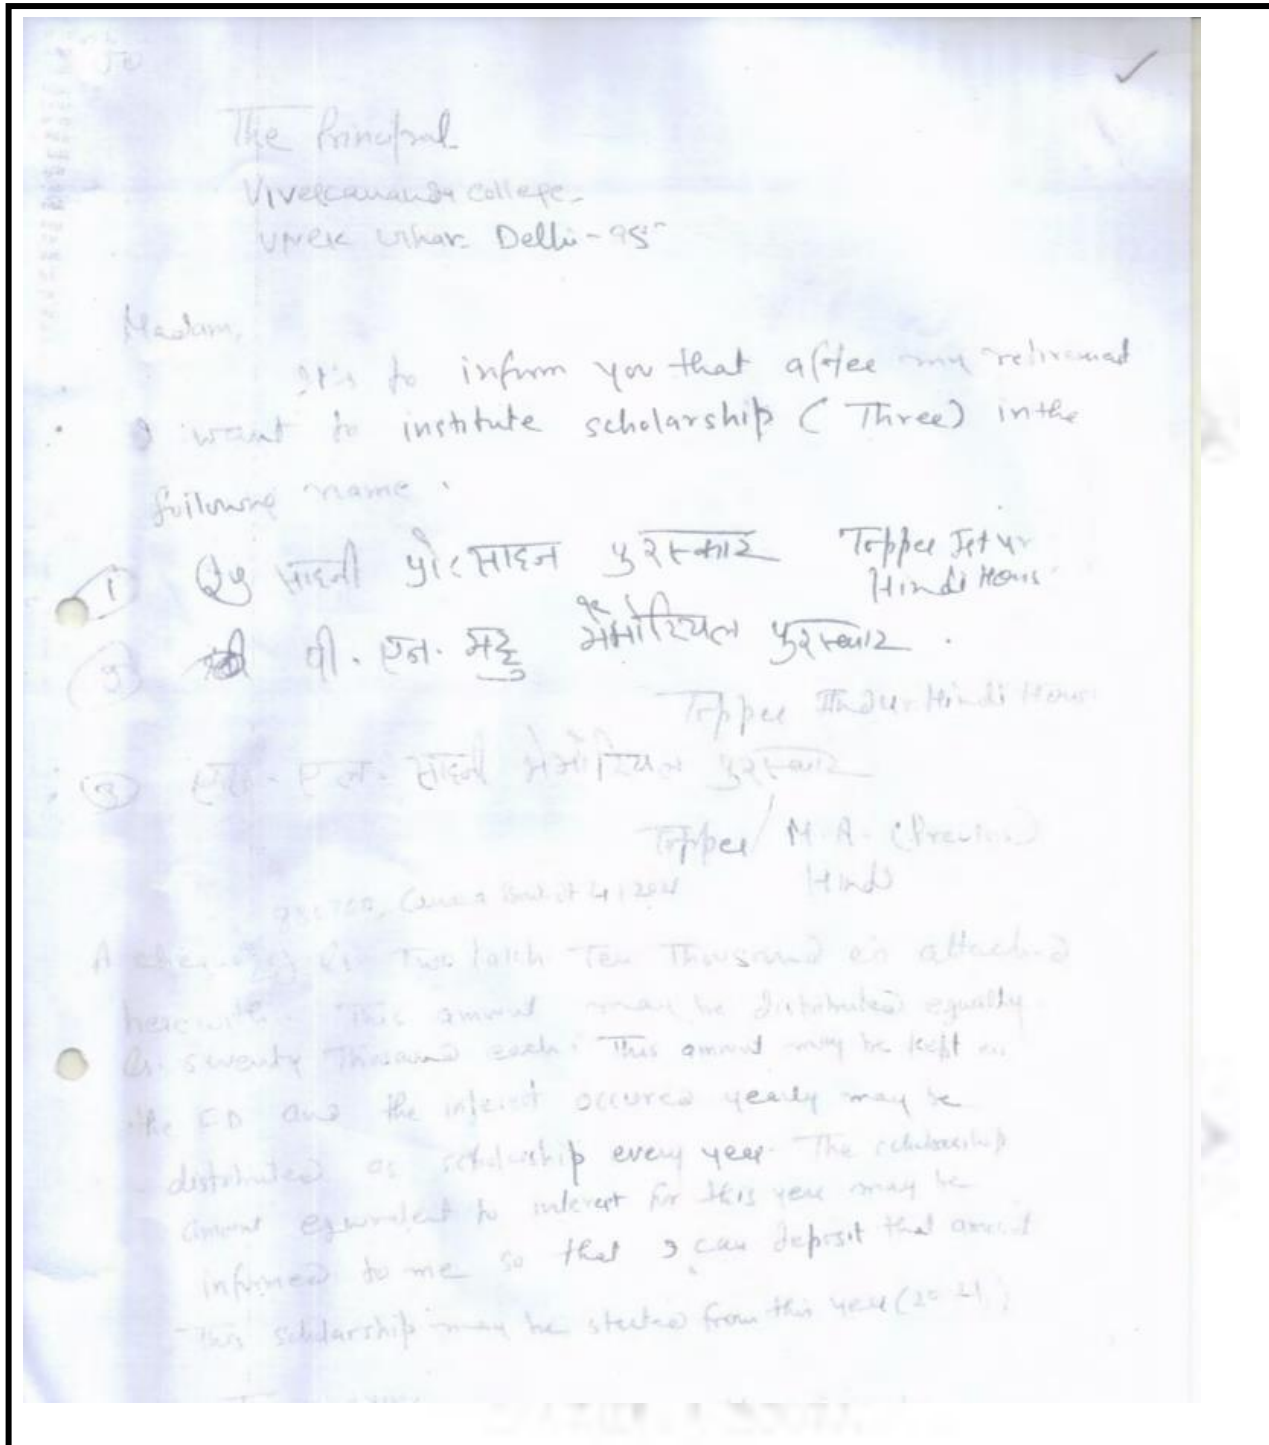 The Principal
Vivekananda College.
Vivek Vihar Delhi-95
Madam,
It is to inform you that after my retirement
I want to institute scholarship (Three) in the
following name.
1 साहनी प्रोत्साहन पुरस्कार Topper Ist yr
Hindi Hons
2 पी. एन. मट्टू मेमोरियल पुरस्कार.
Topper IInd yr Hindi Hons
3 एल. एन. साहनी मेमोरियल पुरस्कार
Topper / M.A. (Previous)
Hindi
A cheque of Rs Two lakh Ten Thousand is attached
herewith. This amount may be distributed equally
Rs. seventy Thousand each. This amount may be kept in
the FD and the interest occured yearly may be
distributed as scholarship every year. The scholarship
amount equivalent to interest for this year may be
informed to me so that I can deposit that amount
This scholarship may be started from this year